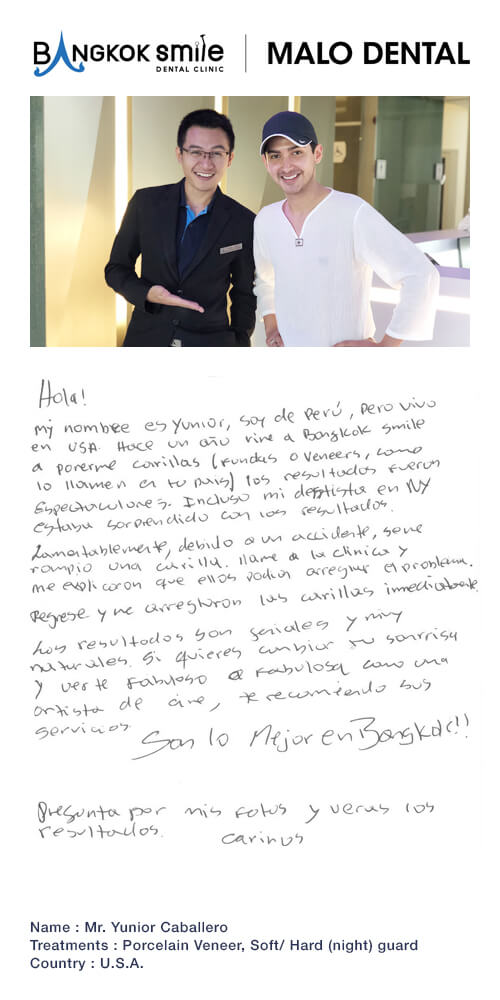 BANGKOK smile
DENTAL CLINIC
MALO DENTAL
Hola!
mi nombre es Yunior, soy de Perú, pero vivo
en USA. Hace un año vine a Bangkok smile
a ponerme carillas (fundas o veneers, como
lo llamen en tu pais) los resultados fueron
Espectaculores. Incluso mi deptista en NY
estaba sorprendido con los resultados.
Lamentablemente, debido a un accidente, se me
rompio una carilla. llame a la clinica y
me explicaron que ellos podian arreglar el problema.
Regrese y me arreglaron las carillas inmediatamente.
Los resultados son geniales y muy
naturales. Si quieres cambiar tu sonrisa
y verte Fabuloso o Fabulosa como una
artista de cine, te recomiendo sus
servicios.
Son lo Mejor en Bangkok!!
Pregunta por mis fotos y veras los
resultados.
carinos
Name : Mr. Yunior Caballero
Treatments : Porcelain Veneer, Soft/ Hard (night) guard
Country : U.S.A.